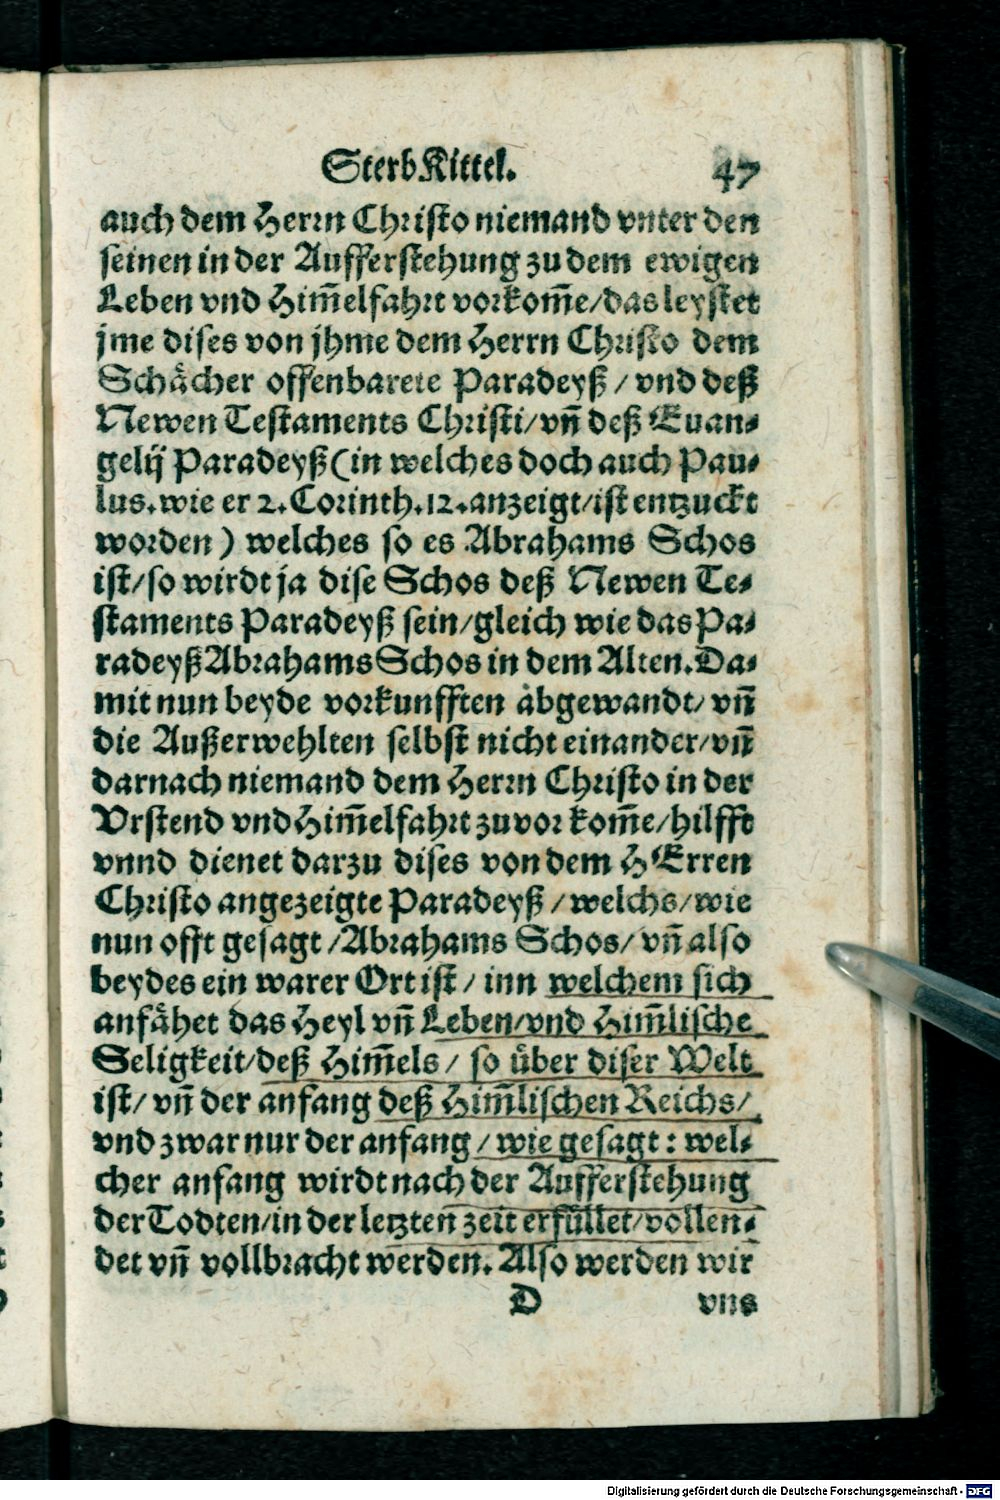 SterbKittel. 47
auch dem Herrn Christo niemand vnter den
seinen in der Aufferstehung zu dem ewigen
Leben vnd Him̃elfahrt vorkom̃e/das leystet
jme dises von jhme dem Herrn Christo dem
Schächer offenbarete Paradeyß / vnd deß
Newen Testaments Christi/vñ deß Euan-
gelij Paradeyß (in welches doch auch Pau-
lus. wie er 2. Corinth. 12. anzeigt/ist entzuckt
worden) welches so es Abrahams Schos
ist/so wirdt ja dise Schos deß Newen Te-
staments Paradeyß sein/gleich wie das Pa-
radeyß Abrahams Schos in dem Alten. Da-
mit nun beyde vorkunfften abgewandt/ vñ
die Außerwehlten selbst nicht einander/vñ
darnach niemand dem Herrn Christo in der
Vrstend vnd Him̃elfahrt zuvor kom̃e/hilfft
vnnd dienet darzu dises von dem HErren
Christo angezeigte Paradeyß / welchs/wie
nun offt gesagt /Abrahams Schos/ vñ also
beydes ein warer Ort ist / inn welchem sich
anfähet das Heyl vñ Leben/vnd Him̃lische
Seligkeit/deß Him̃els / so über diser Welt
ist/ vñ der anfang deß Him̃lischen Reichs/
vnd zwar nur der anfang / wie gesagt : wel-
cher anfang wirdt nach der Aufferstehung
der Todten/in der letzten zeit erfüllet/vollen-
det vñ vollbracht werden. Also werden wir
D vns
Digitalisierung gefördert durch die Deutsche Forschungsgemeinschaft - DFG